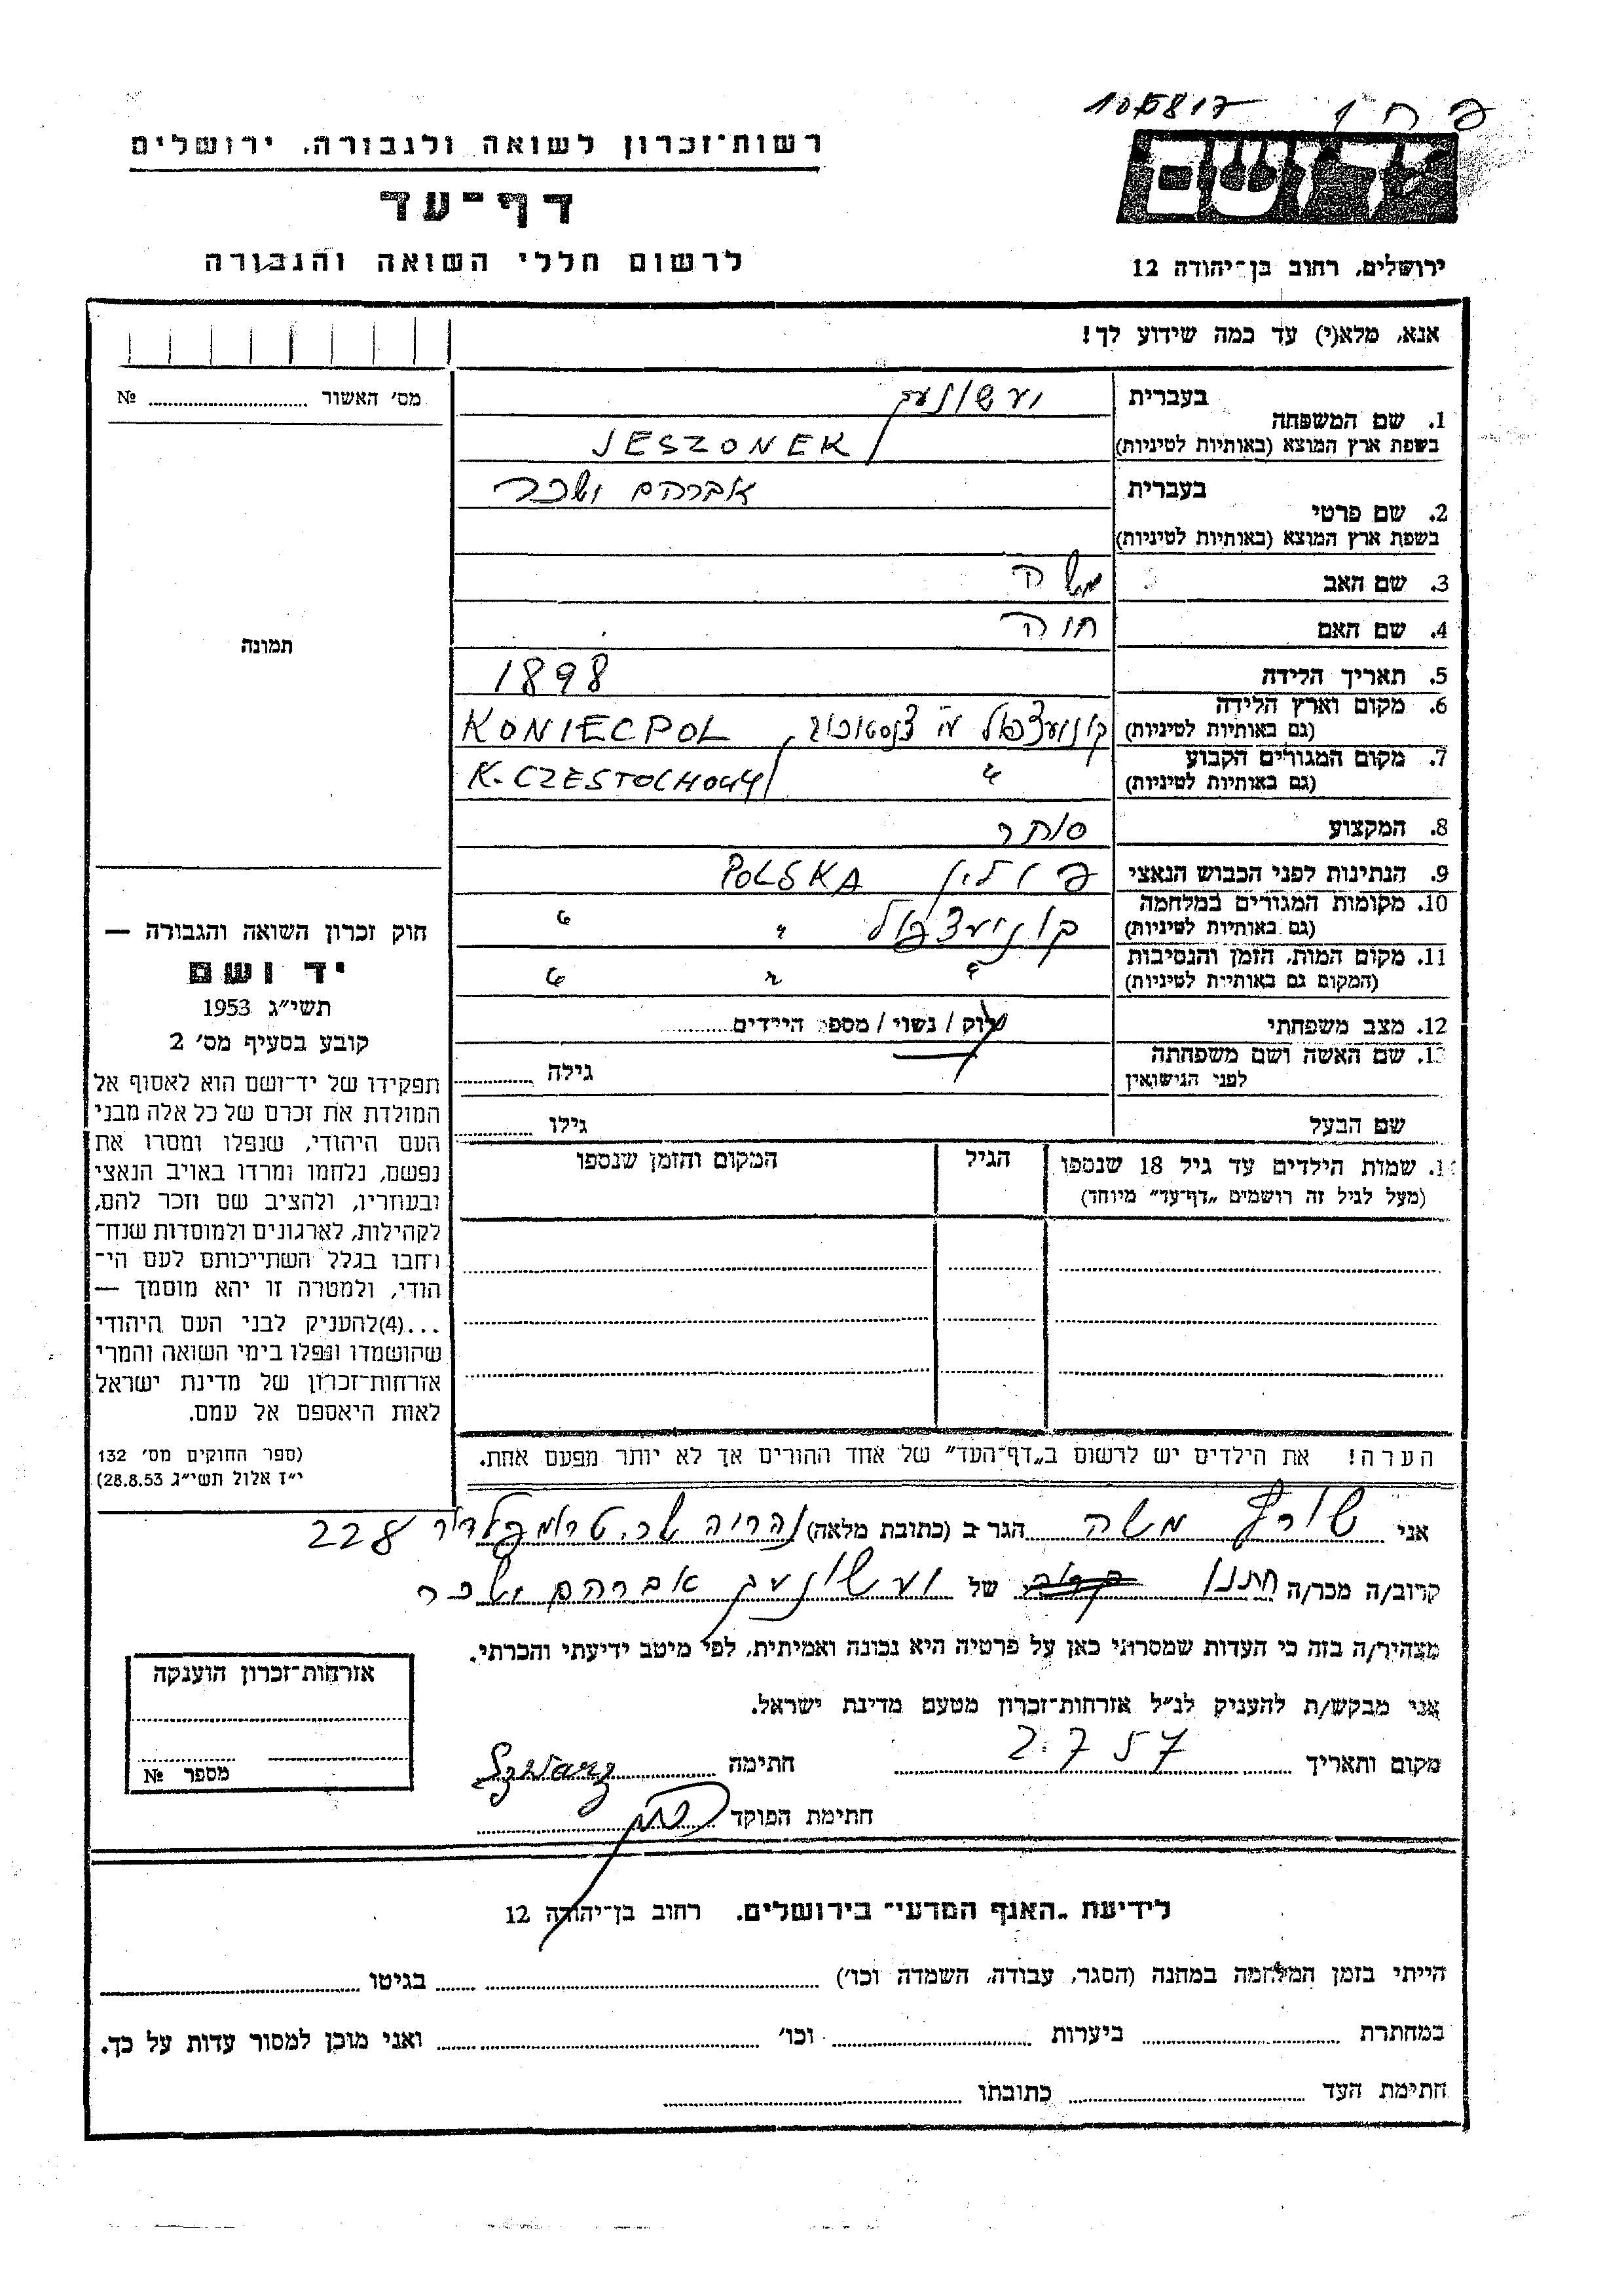 106817
רשות־זכרון לשואה ולגבורה. ירושלים
יד ושם
דף־עד
לרשום חללי השואה והגבורה
ירושלים, רחוב בן־יהודה 12
אנא, מלא(י) עד כמה שידוע לך!
מס׳ האשור № 
תמונה
1. שם המשפחה
בעברית יעשונעק
בשפת ארץ המוצא (באותיות לטיניות) JESZONEK
2. שם פרטי
בעברית אברהם יששכר
בשפת ארץ המוצא (באותיות לטיניות)
3. שם האב משה
4. שם האם חוה
5. תאריך הלידה 1898
6. מקום וארץ הלידה
(גם באותיות לטיניות) KONIECPOL
7. מקום המגורים הקבוע
(גם באותיות לטיניות) " K. CZESTOCHOWY
8. המקצוע סוחר
9. הנתינות לפני הכבוש הנאצי פולין POLSKA
10. מקומות המגורים במלחמה
(גם באותיות לטיניות) קוניעצפול " "
11. מקום המות, הזמן והנסיבות
(המקום גם באותיות לטיניות) " " "
12. מצב משפחתי רווק / נשוי / מספר הילדים
13. שם האשה ושם משפחתה
לפני הנישואין גילה
שם הבעל גילו
14. שמות הילדים עד גיל 18 שנספו
(מעל לגיל זה רושמים „דף־עד״ מיוחד)
הגיל
המקום והזמן שנספו
הערה! את הילדים יש לרשום ב„דף־העד״ של אחד ההורים אך לא יותר מפעם אחת.
חוק זכרון השואה והגבורה —
יד ושם
תשי״ג 1953
קובע בסעיף מס׳ 2
תפקידו של יד־ושם הוא לאסוף אל
המולדת את זכרם של כל אלה מבני
העם היהודי, שנפלו ומסרו את
נפשם, נלחמו ומרדו באויב הנאצי
ובעוזריו, ולהציב שם וזכר להם,
לקהילות, לארגונים ולמוסדות שנח־
רבו בגלל השתייכותם לעם הי־
הודי, ולמטרה זו יהא מוסמך —
...(4)להעניק לבני העם היהודי
שהושמדו ונפלו בימי השואה והמרי
אזרחות־זכרון של מדינת ישראל
לאות היאספם אל עמם.
(ספר החוקים מס׳ 132
י״ז אלול תשי״ג 28.8.53)
אני משה הגר ב (כתובת מלאה) נהריה טרומפלדור 228
קרוב/ה מכר/ה חתנו של יעשונעק אברהם יששכר
מצהיר/ה בזה כי העדות שמסרתי כאן על פרטיה היא נכונה ואמיתית, לפי מיטב ידיעתי והכרתי.
אני מבקש/ת להעניק לנ״ל אזרחות־זכרון מטעם מדינת ישראל.
מקום ותאריך 2.7.57 חתימה
חתימת הפוקד
אזרחות־זכרון הוענקה
מספר №
לידיעת „האגף המדעי״ בירושלים. רחוב בן־יהודה 12
הייתי בזמן המלחמה במחנה (הסגר, עבודה, השמדה וכו׳) בגיטו
במחתרת ביערות וכו׳ ואני מוכן למסור עדות על כך.
חתימת העד כתובתו